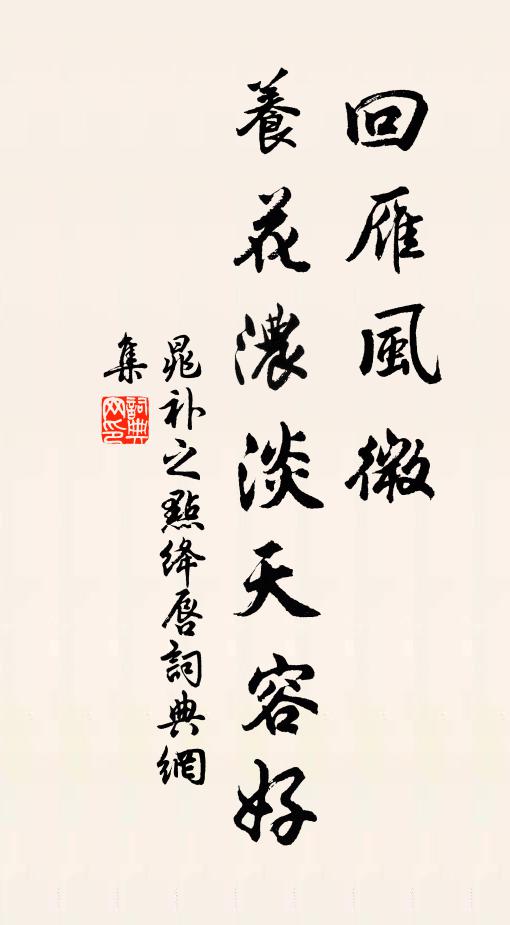 回雁風微
養花濃淡天容好
晁補之點絳唇詞典網
集
詞典网印